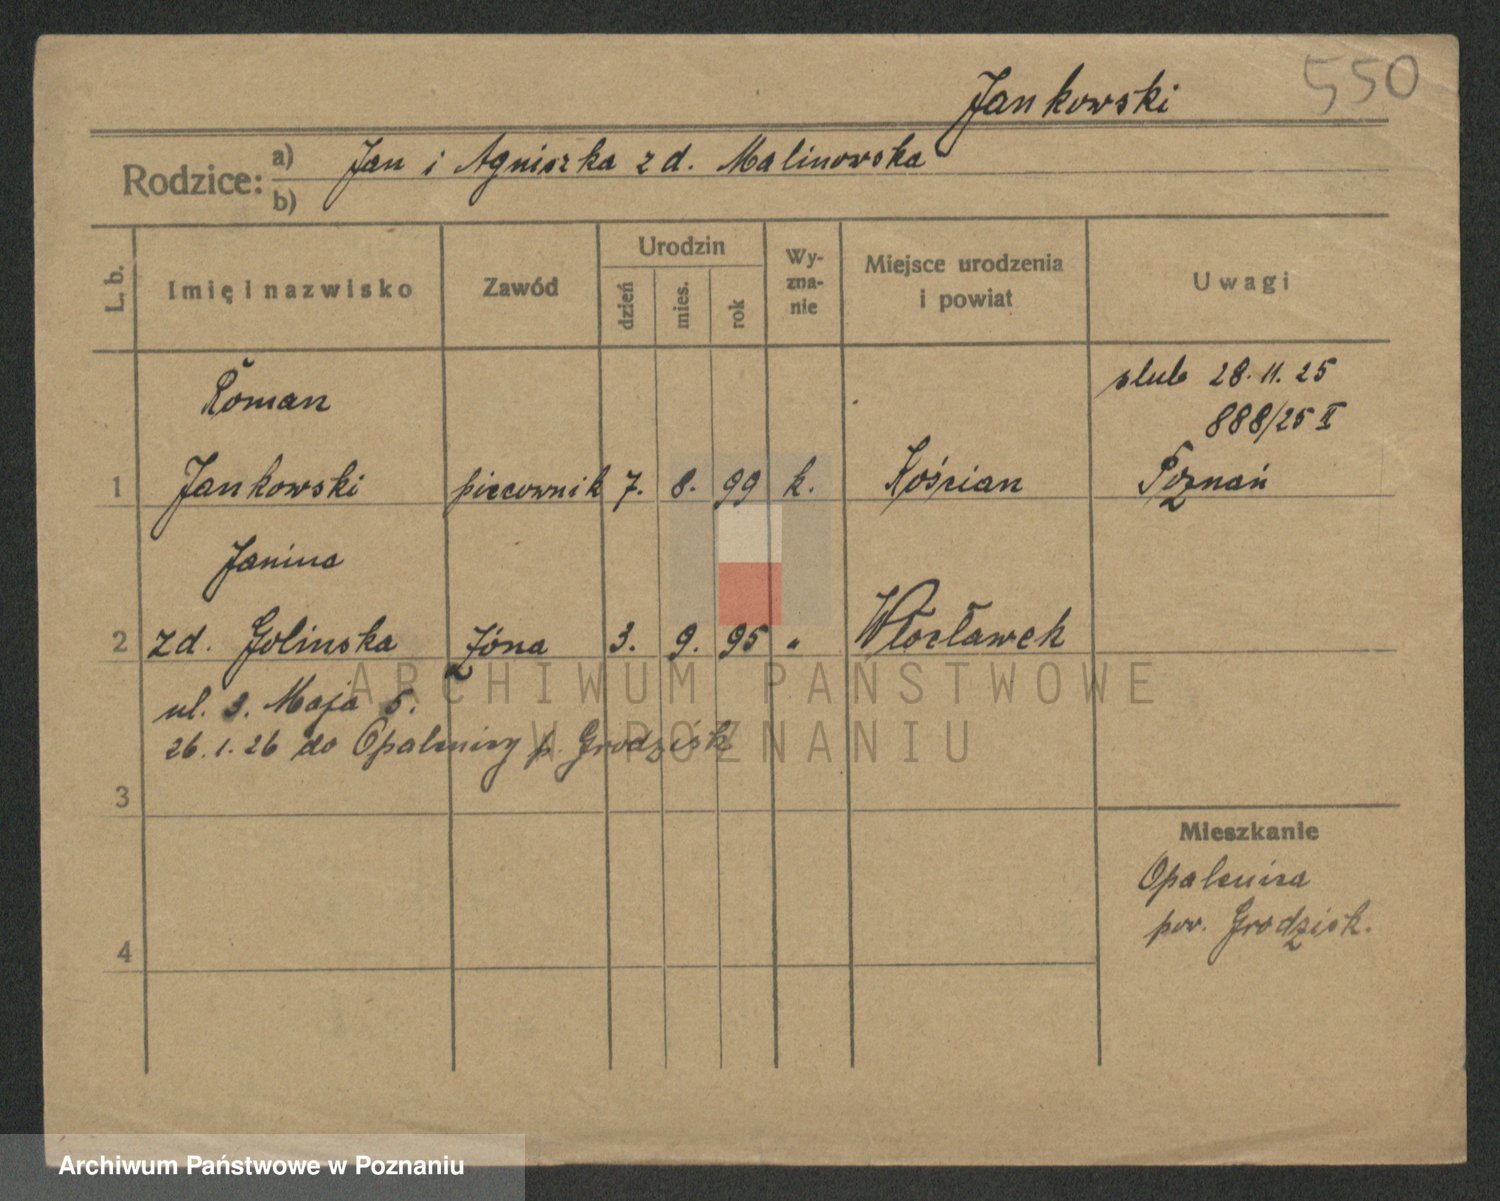 550
Jankowski
Rodzice: a) Jan i Agnieszka z d. Malinowska
b)
L. b. Imię i nazwisko Zawód Urodzin dzień mies. rok Wy-zna-nie Miejsce urodzenia i powiat Uwagi
Roman ślub 28.11.25
888/25 II
1 Jankowski piecownik 7. 8. 99 k. Kościan Poznań
Janina
2 z d. Golinska żona 3. 9. 95 " Włocławek
ul. 3. Maja 5.
26.1.26 do Opalenicy p. Grodzisk
3
Mieszkanie
Opalenica
pow. Grodzisk.
4
ARCHIWUM PAŃSTWOWE
W POZNANIU
Archiwum Państwowe w Poznaniu